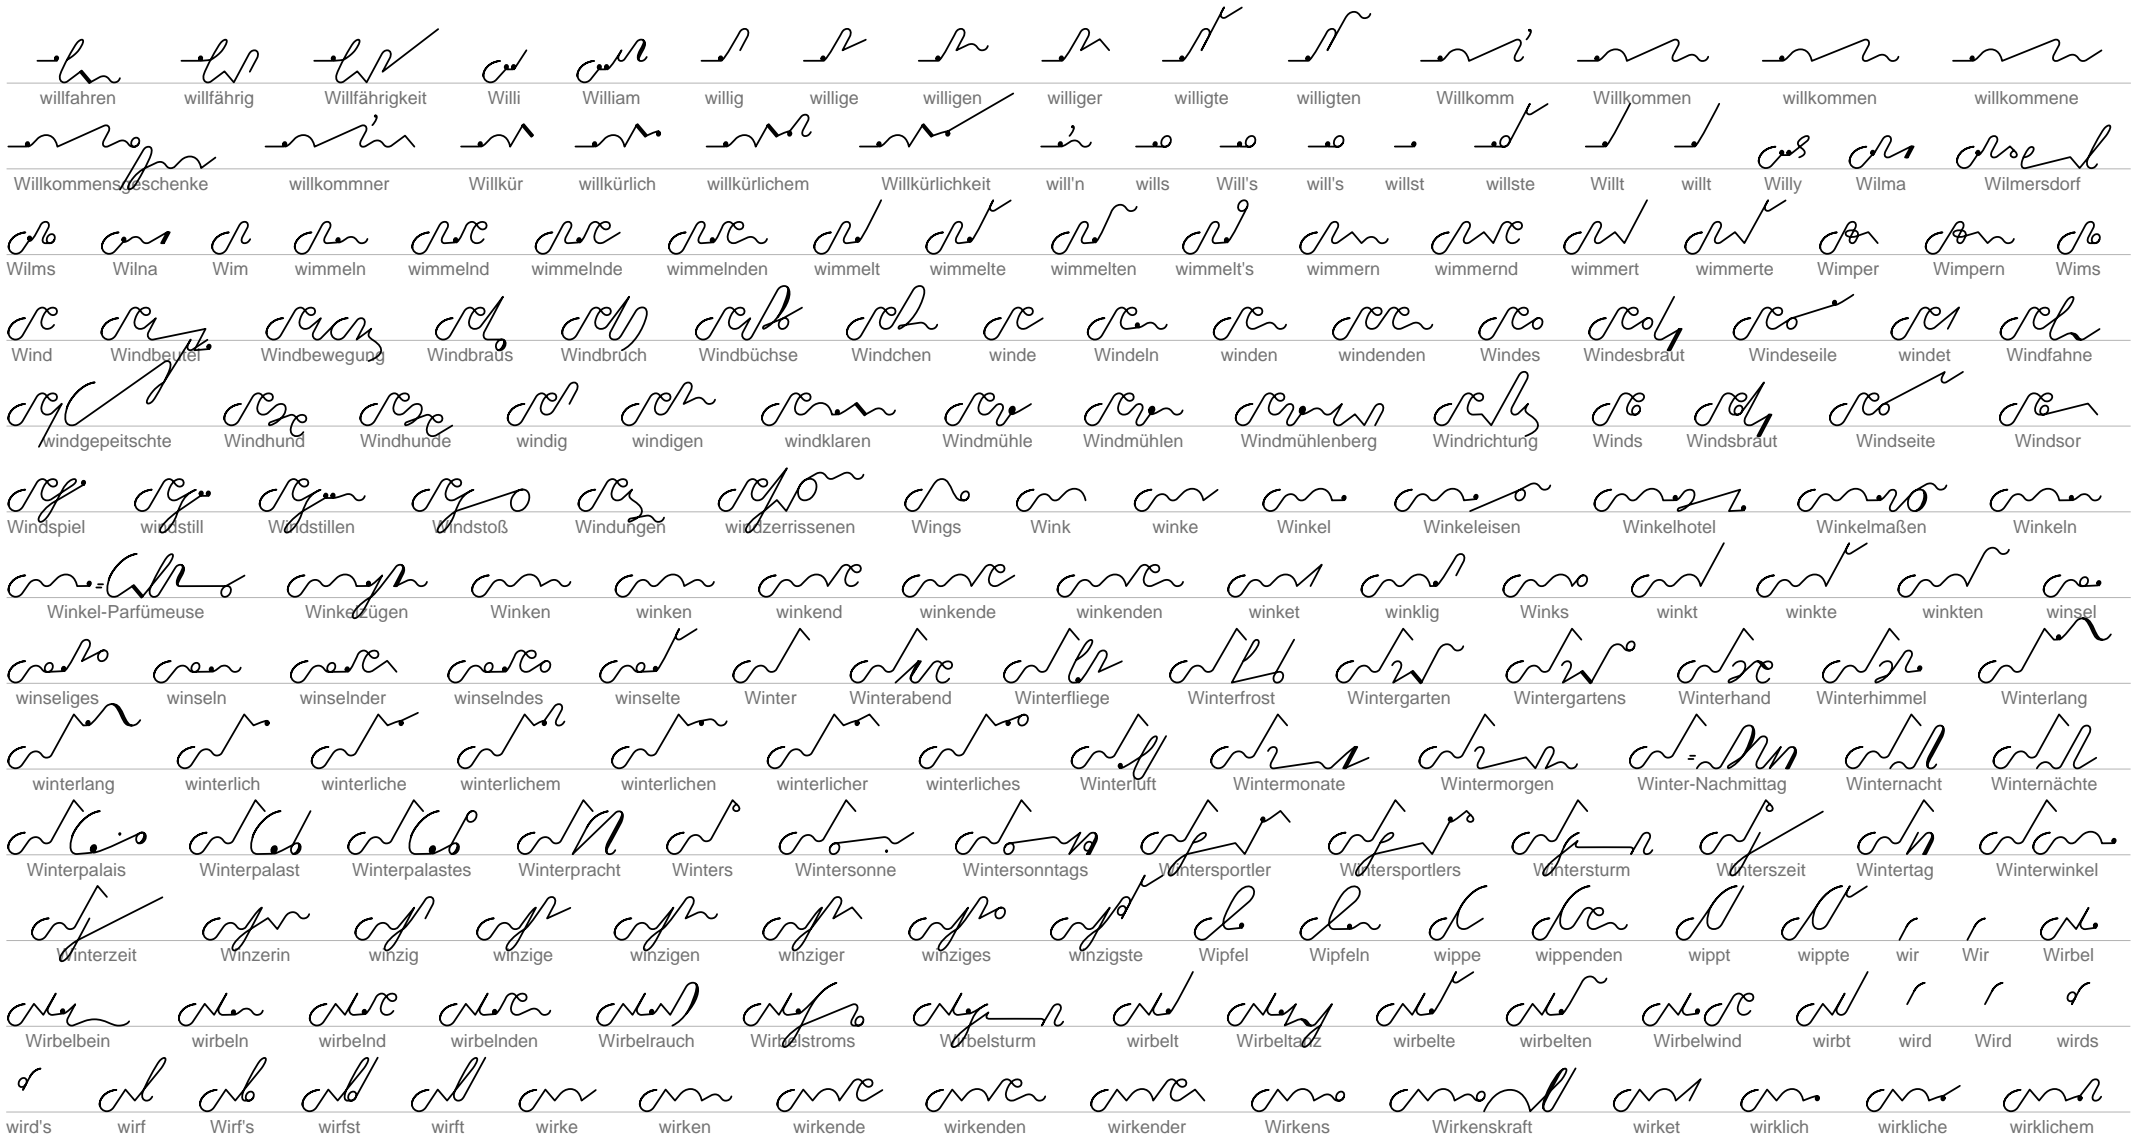 willfahren willfährig Willfährigkeit Willi William willig willige willigen williger willigte willigten Willkomm Willkommen willkommen willkommene
Willkommensgeschenke willkommner Willkür willkürlich willkürlichem Willkürlichkeit will'n wills Will's will's willst willste Willt willt Willy Wilma Wilmersdorf
Wilms Wilna Wim wimmeln wimmelnd wimmelnde wimmelnden wimmelt wimmelte wimmelten wimmelt's wimmern wimmernd wimmert wimmerte Wimper Wimpern Wims
Wind Windbeutel Windbewegung Windbraus Windbruch Windbüchse Windchen winde Windeln winden windenden Windes Windesbraut Windeseile windet Windfahne
windgepeitschte Windhund Windhunde windig windigen windklaren Windmühle Windmühlen Windmühlenberg Windrichtung Winds Windsbraut Windseite Windsor
Windspiel windstill Windstillen Windstoß Windungen windzerrissenen Wings Wink winke Winkel Winkeleisen Winkelhotel Winkelmaßen Winkeln
Winkel-Parfümeuse Winkelzügen Winken winken winkend winkende winkenden winket winklig Winks winkt winkte winkten winsel
winseliges winseln winselnder winselndes winselte Winter Winterabend Winterfliege Winterfrost Wintergarten Wintergartens Winterhand Winterhimmel Winterlang
winterlang winterlich winterliche winterlichem winterlichen winterlicher winterliches Winterluft Wintermonate Wintermorgen Winter-Nachmittag Winternacht Winternächte
Winterpalais Winterpalast Winterpalastes Winterpracht Winters Wintersonne Wintersonntags Wintersportler Wintersportlers Wintersturm Winterszeit Wintertag Winterwinkel
Winterzeit Winzerin winzig winzige winzigen winziger winziges winzigste Wipfel Wipfeln wippe wippenden wippt wippte wir Wir Wirbel
Wirbelbein wirbeln wirbelnd wirbelnden Wirbelrauch Wirbelstroms Wirbelsturm wirbelt Wirbeltanz wirbelte wirbelten Wirbelwind wirbt wird Wird wirds
wird's wirf Wirf's wirfst wirft wirke wirken wirkende wirkenden wirkender Wirkens Wirkenskraft wirket wirklich wirkliche wirklichem